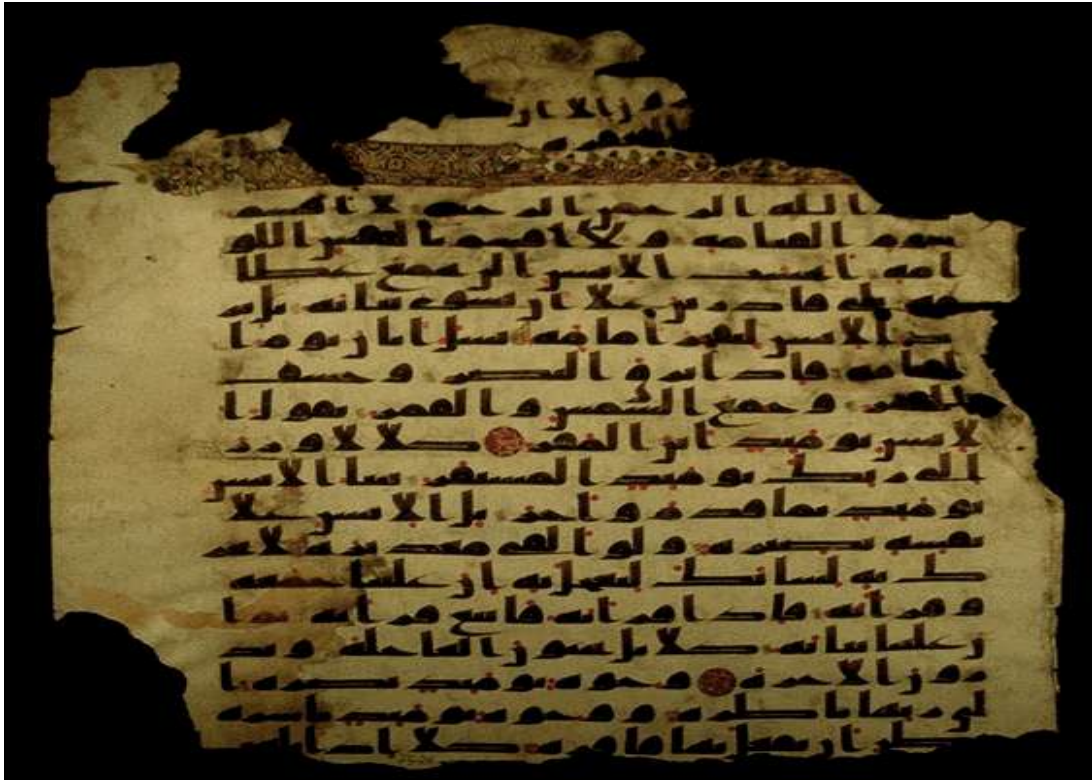 رون الا ان
الله الرحمن الرحيم لا اقسم
بيوم القيامة ولا اقسم بالنفس اللو
امة ايحسب الانسن الن نجمع عظا
مه بلى قادرين علا ان نسوي بنانه بل ير
يد الانسن ليفجر امامه يسل ايان يوم ا
لقيامة فاذا برق البصر وخسف
القمر وجمع الشمس والقمر يقول ا
لانسن يومئذ اين المفر كلا لا وزر
الى ربك يومئذ المستقر ينبا الانسن
يومئذ بما قدم واخر بل الانسن علا
نفسه بصيرة ولو القى معذيره لا تحر
ك به لسانك لتعجل به ان علينا جمعه
وقرانه فاذا قرانه فاتبع قرانه ثم ا
ن علينا بيانه كلا بل تحبون العاجلة وتذ
رون الاخرة وجوه يومئذ نضرة ا
لى ربها ناظرة ووجوه يومئذ باسرة
تظن ان يفعل بها فاقرة كلا اذا بلغت